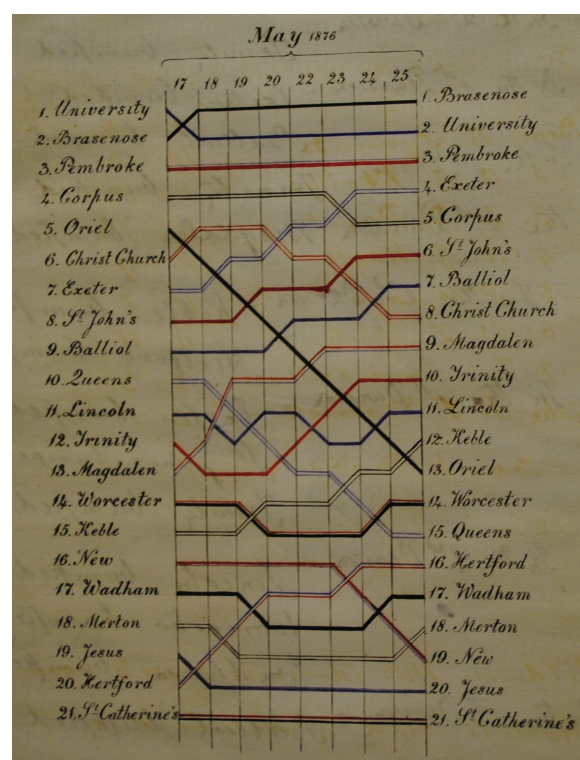 May 1876
17 18 19 20 22 23 24 25
1. University
2. Brasenose
3. Pembroke
4. Corpus
5. Oriel
6. Christ Church
7. Exeter
8. St John's
9. Balliol
10. Queens
11. Lincoln
12. Trinity
13. Magdalen
14. Worcester
15. Keble
16. New
17. Wadham
18. Merton
19. Jesus
20. Hertford
21. St Catherine's
1. Brasenose
2. University
3. Pembroke
4. Exeter
5. Corpus
6. St John's
7. Balliol
8. Christ Church
9. Magdalen
10. Trinity
11. Lincoln
12. Keble
13. Oriel
14. Worcester
15. Queens
16. Hertford
17. Wadham
18. Merton
19. New
20. Jesus
21. St Catherine's